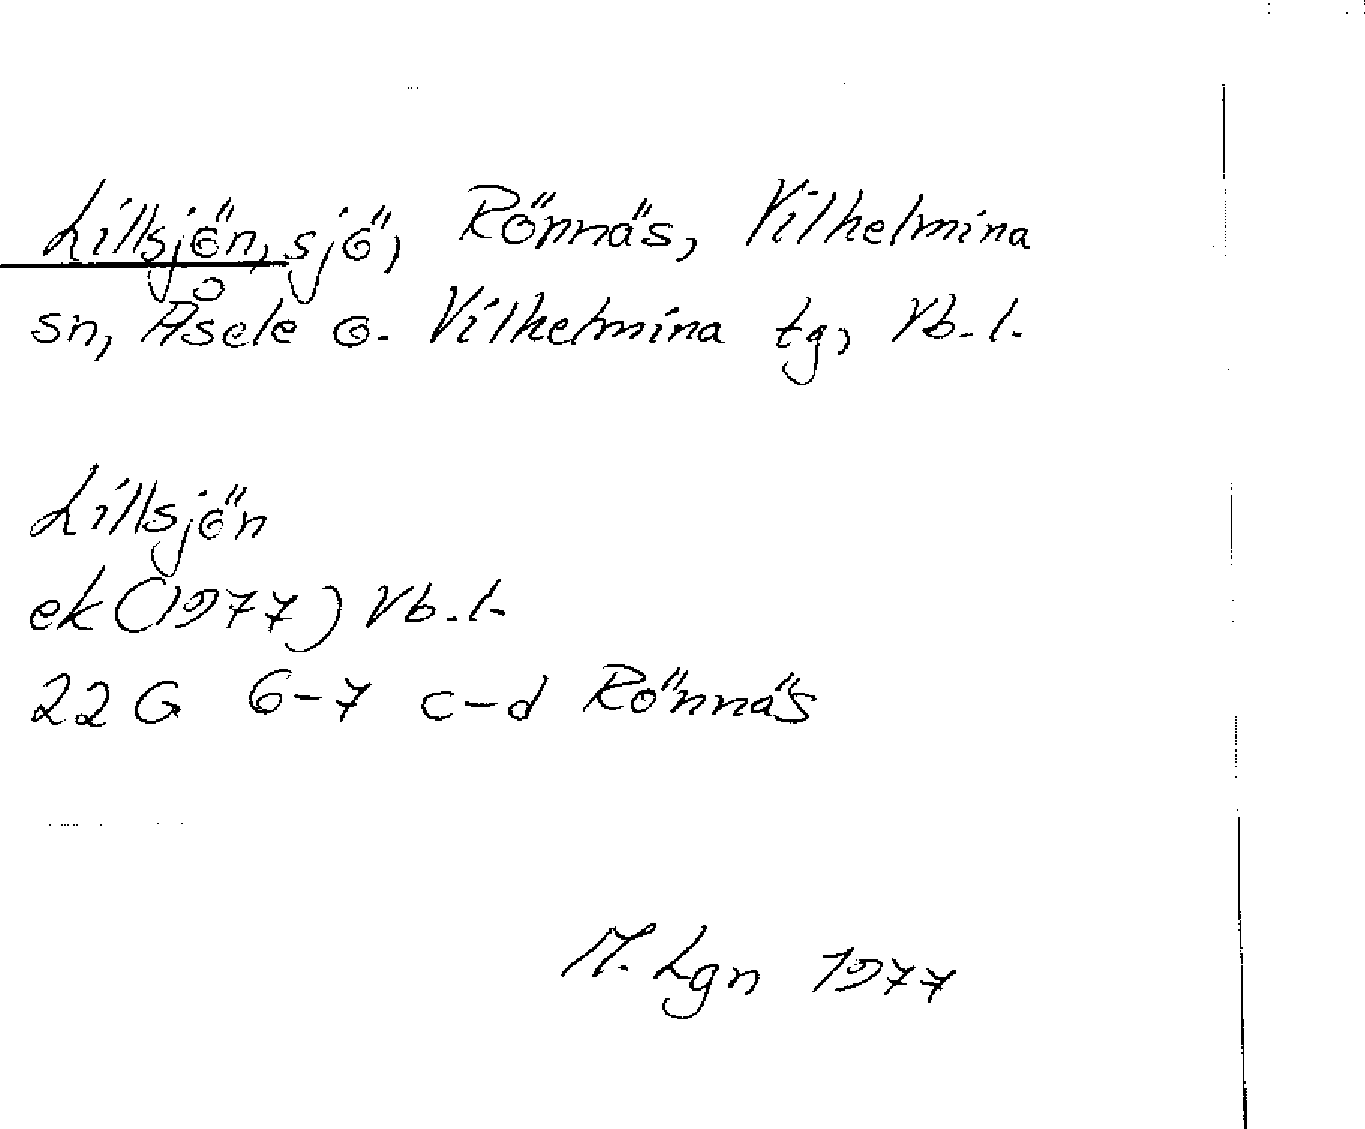 Lillsjön, sjö, Rönnäs, Vilhelmina
sn, Åsele o. Vilhelmina tg, Vb. l.
Lillsjön
ek (1977) Vb. l.
22 G 6-7 c-d Rönnäs
M. Lgn 1977